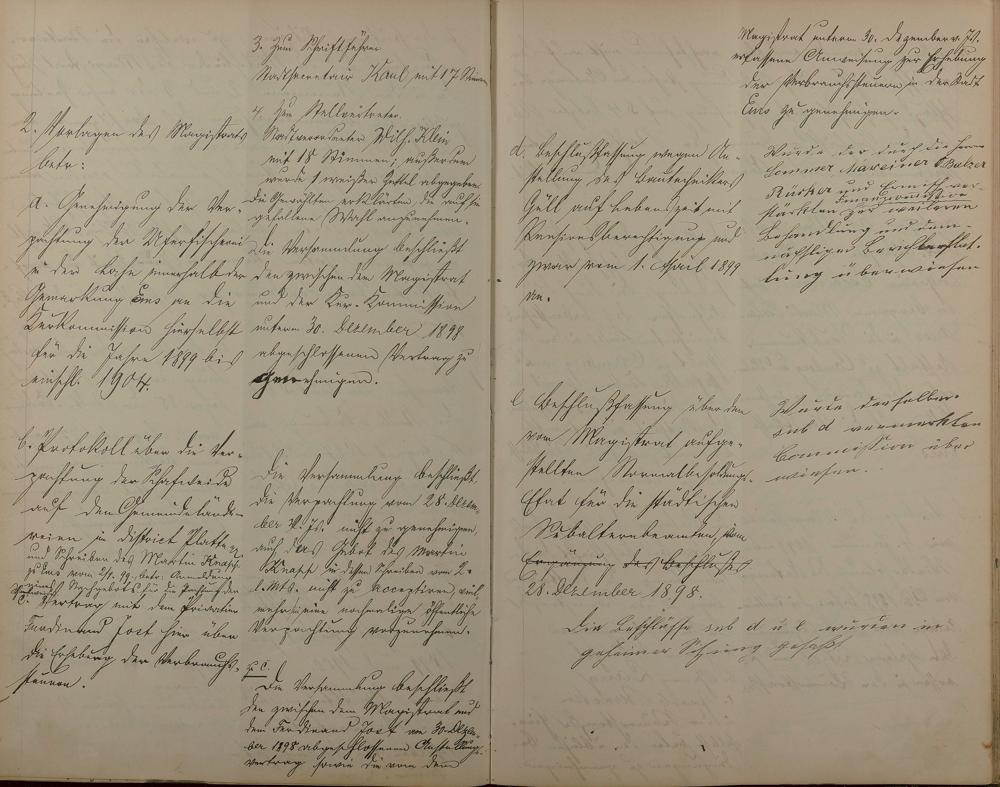 3. Zum Schriftführer
Stadtsecretair Kaul mit 17 Stimmen
4. Zum Stellvertreter
Stadtverordneter Wilh. Klein
mit 18 Stimmen; außerdem
wurde 1 weißer Zettel abgegeben.
Die Gewählten erklärten, die auf sie
gefallene Wahl anzunehmen.
2. Vorlagen des Magistrats
betr:
a. Genehmigung der Ver-
pachtung der Uferfischerei
in der Lahn innerhalb der
Gemarkung Ems an die
Kurkommission hierselbst
für die Jahre 1899 bis
einschl. 1904.
Die Versammlung beschließt
den zwischen dem Magistrat
und der Kur-Kommission
unterm 30. Dezember 1898
abgeschlossenen Vertrag zu
genehmigen.
b. Protokoll über die Ver-
pachtung der Schafweide
auf den Gemeindelände-
reien im District Platte
und Schreiben des Martin Knapp
zu Ems vom 2/1. 99, betr. Anmeldung
eines Nachgebots für die Pachtung der
Vertrag mit dem Privatier
Ferdinand Jost hier über
die Erhebung der Verbrauchs-
steuern.
Die Versammlung beschließt
die Verpachtung vom 28. Dezem-
ber v. Js. nicht zu genehmigen,
auch das Gebot des Martin
Knapp in dessen Schreiben vom 2.
l. Mts. nicht zu acceptiren, viel-
mehr eine nochmalige öffentliche
Verpachtung vorzunehmen.
z. C.
Die Versammlung beschließt
den zwischen dem Magistrat und
dem Ferdinand Jost am 30. Dezem-
ber 1898 abgeschlossenen Anstellungs-
vertrag sowie die von dem
Magistrat unterm 30. Dezember v. Js.
erlassene Anweisung zur Erhebung
der Verbrauchssteuern in der Stadt
Ems zu genehmigen.
d. Beschlußfassung wegen An-
stellung des Bautechnikers
Göll auf Lebenszeit mit
Pensionsberechtigung und
zwar vom 1. April 1899
an.
Wurde der durch die Herren
Sommer Balzer
und
verstärkten Finanzcommission
zur weiteren
Behandlung und dem-
nächstigen Berichterstat-
tung überwiesen
e Beschlußfassung über den
vom Magistrat aufge-
stellten Normalbesoldungs-
Etat für die städtischen
Subalternbeamten vom
des Beschlusses
28. Dezember 1898.
Wurde derselben
sub d vermerkten
Commission über
wiesen.
Die Beschlüsse sub d u. e wurden in
geheimer Sitzung gefaßt